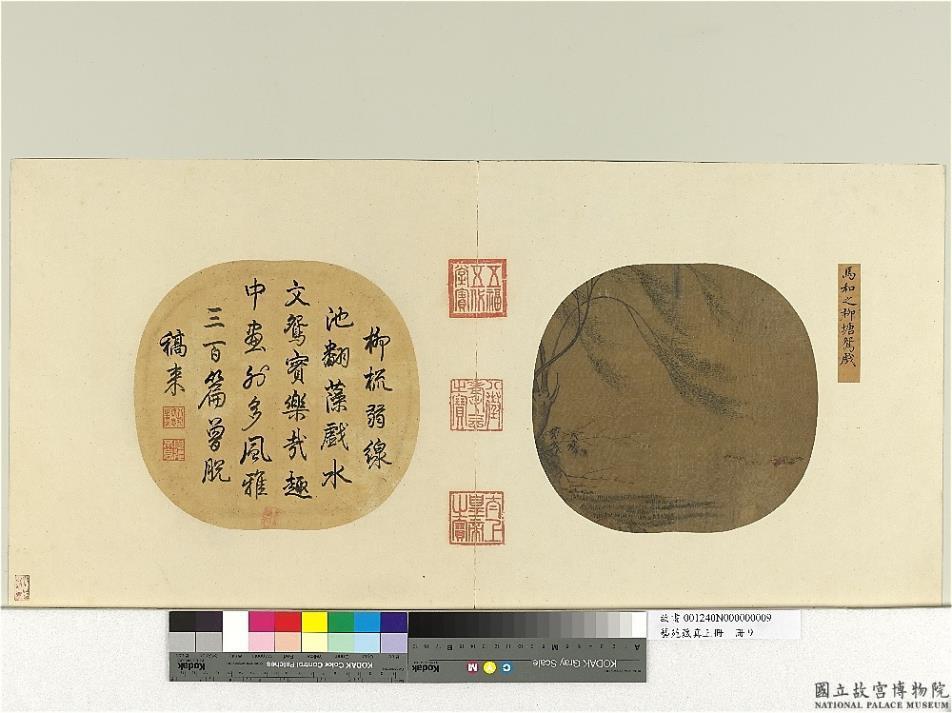 馬和之柳塘鴛戲
柳梳弱線
池翻藻戲水
文鴛實樂哉趣
中畫外多風雅
三百篇曾脫
稿來
五福五代堂寶
八徵耄念之寶
太上皇帝之寶
Kodak
KODAK Color Control Patches
KODAK Gray Scale
Kodak
A
M
Y
C
故書 001240N000000009
藝苑藏真上冊 冊 9
國立故宮博物院
NATIONAL PALACE MUSEUM